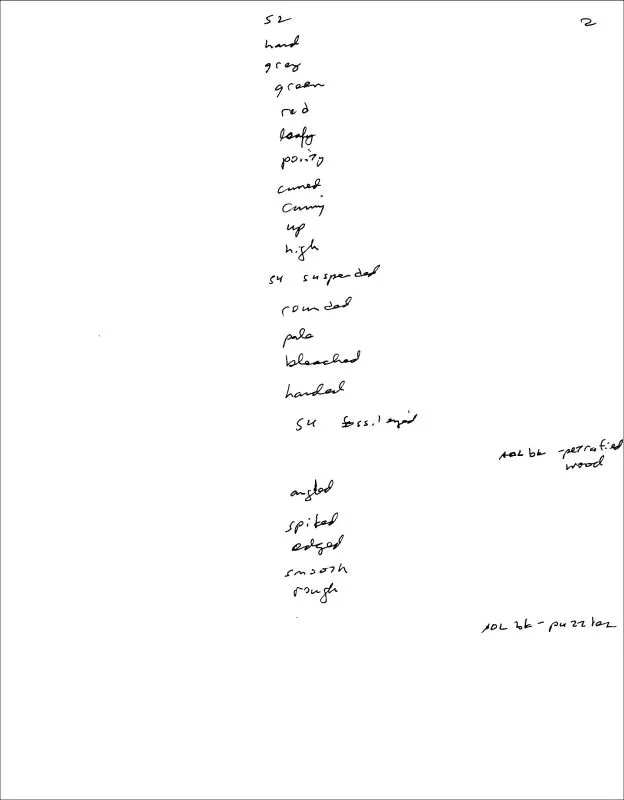 S2
2
hard
grey
green
red
leafy
pointy
curved
up
high
S4 suspended
rounded
pale
bleached
S4
AOL bk - petrified
wood
angled
spiked
edged
smooth
rough
AOL bk - puzzler